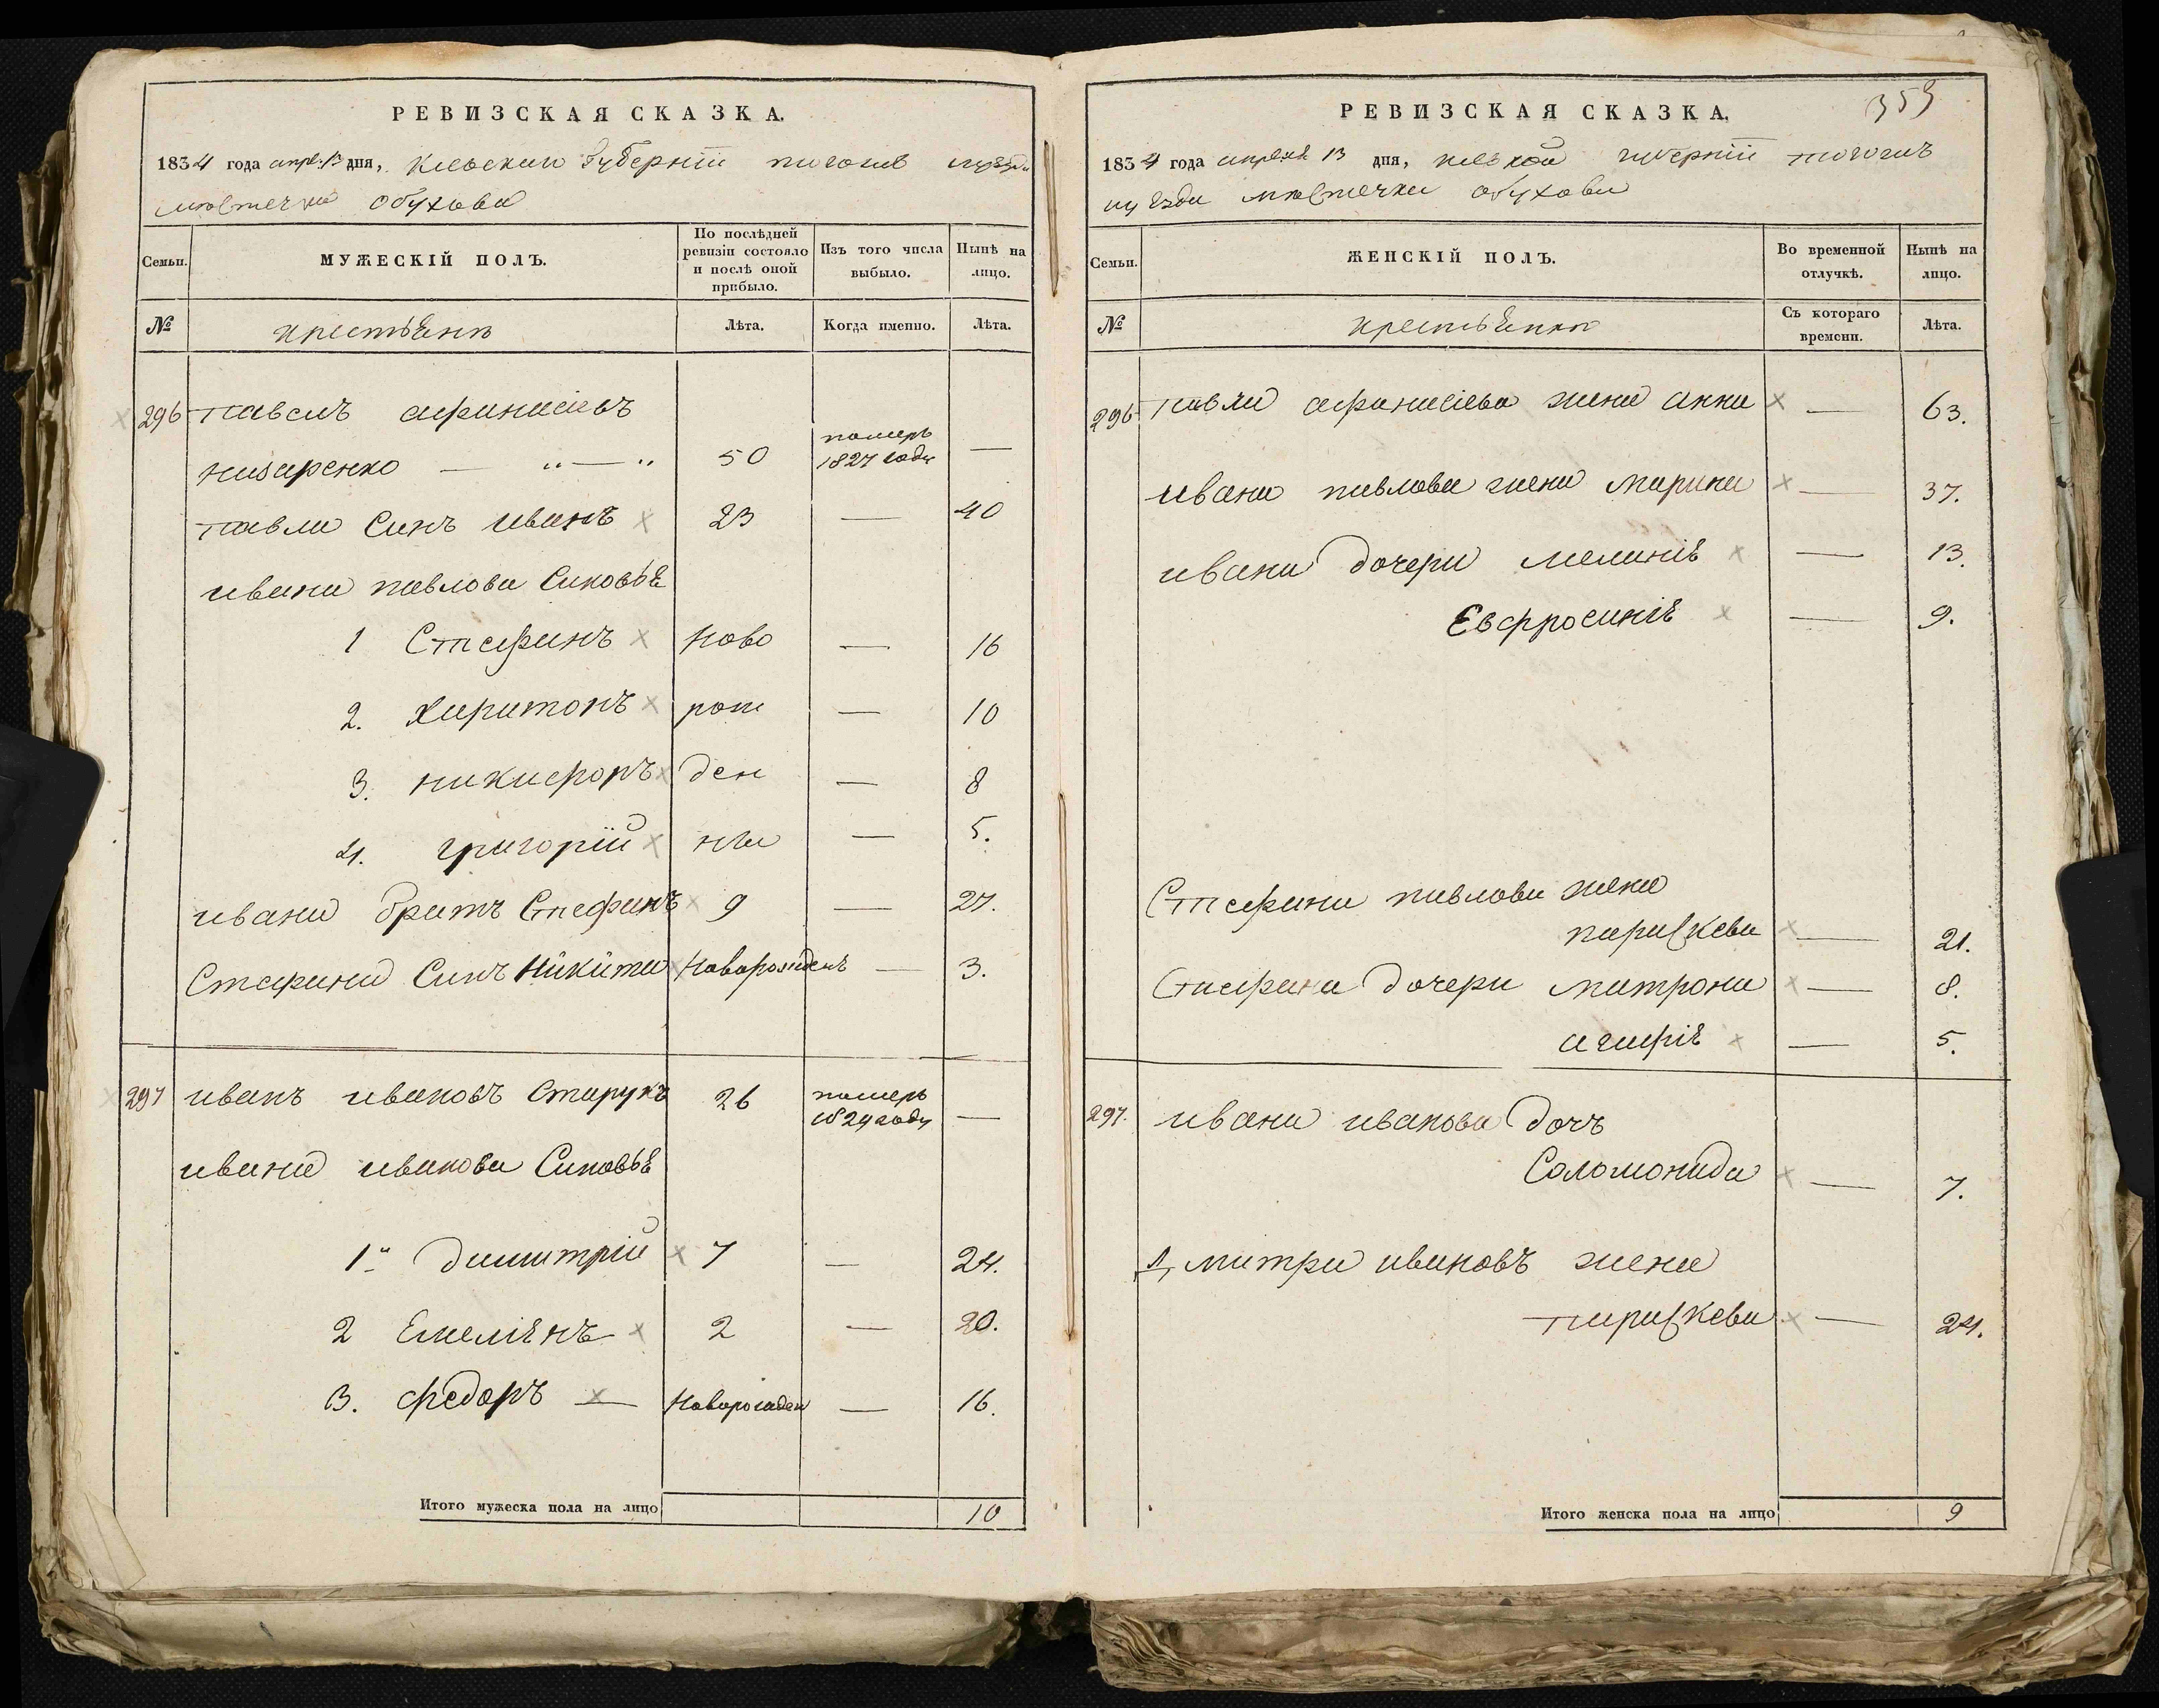 РЕВИЗСКАЯ СКАЗКА.
1834 года апрѣ: 13 дня, Кіевскои Губерніи тогожъ уѣзда
мѣстечка Обухова
Семьи.
МУЖЕСКІЙ ПОЛЪ.
По послѣдней ревизіи состояло и послѣ оной прибыло.
Изъ того числа выбыло.
Нынѣ на лицо.
№ крестьяне Лѣта. Когда именно. Лѣта.
296 павелъ афанасіевъ
назаренко — „ — „ 50 померъ 1827 году —
павла Синъ иванъ х 23 — 40
ивана павлова Синовья
1 Стефанъ х ново — 16
2. Харитонъ х рож — 10
3. никифоръ х ден — 8
4. григорій х ніи — 5.
ивана братъ Стефанъ х 9 — 27.
Стефана Синъ Никита х Новорожденъ — 3.
297 иванъ ивановъ Старукъ 26 померъ 1829 году —
ивана иванова Синовья
1. димитрій х 7 — 24.
2 Емеліянъ х 2 — 20.
3. федоръ х — Новорожден — 16.
Итого мужеска пола на лицо 10
РЕВИЗСКАЯ СКАЗКА.
353
1834 года апрѣля 13 дня, киевской губерніи тогожъ
уѣзда мѣстечка обухова
Семьи.
ЖЕНСКІЙ ПОЛЪ.
Во временной отлучкѣ.
Нынѣ на лицо.
№ крестьянки Съ котораго времени. Лѣта.
296 павла афанасіева жена анна х — 63.
ивана павлова жена марина х — 37.
ивана дочери меланія х — 13.
Евфросинія х — 9.
Стефана павлова жена
параскева х — 21.
Стефана дочери матрона х — 8.
агафія х — 5.
297. ивана иванова дочъ
Соломонида х — 7.
Дмитра ивановъ жена
параскева х — 24.
Итого женска пола на лицо 9